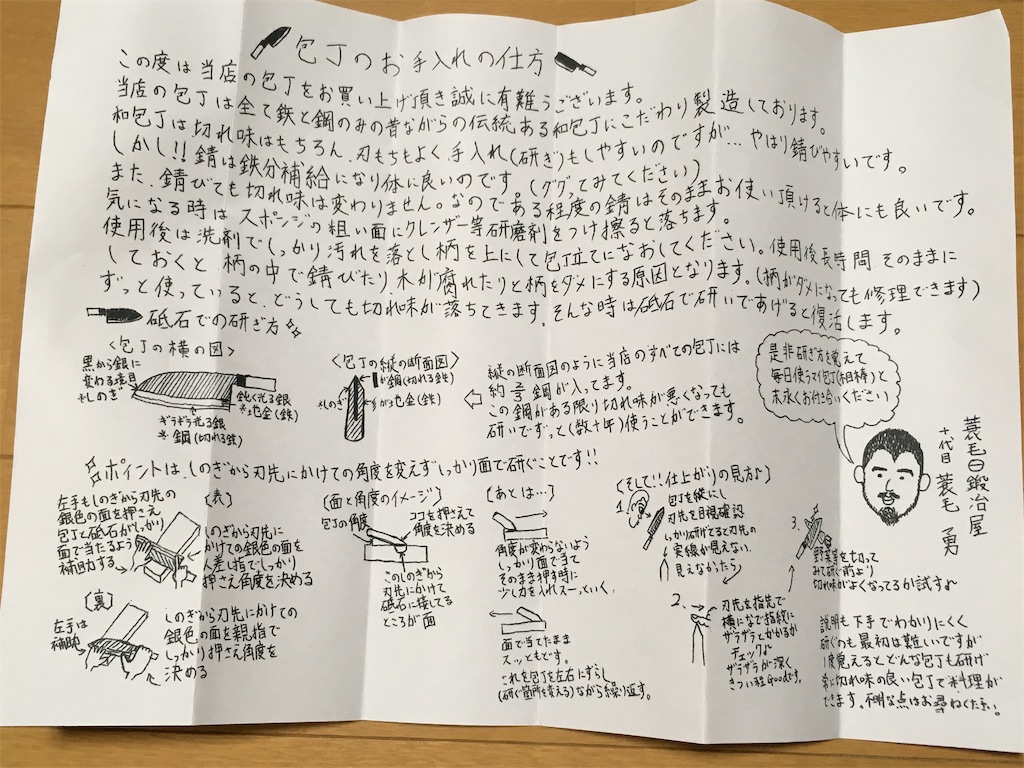 包丁のお手入れの仕方
この度は当店の包丁をお買い上げ頂き誠に有難うございます。
当店の包丁は全て鉄と鋼のみの昔ながらの伝統ある和包丁にこだわり製造しております。
和包丁は切れ味はもちろん、刃もちもよく、手入れ(研ぎ)もしやすいのですが…やはり錆びやすいです。
しかし!!錆は鉄分補給になり体に良いのです。(ググってみてください)
また、錆びても切れ味は変わりません。なのである程度の錆はそのままお使い頂けると体にも良いです。
気になる時はスポンジの粗い面にクレンザー等研磨剤をつけ擦ると落ちます。
使用後は洗剤でしっかり汚れを落とし柄を上にして包丁立てになおしてください。使用後長時間、そのままに
しておくと、柄の中で錆びたり、木が腐れたりと柄をダメにする原因となります。(柄がダメになっても修理できます)
ずっと使っていると、どうしても切れ味が落ちてきます。そんな時は砥石で研いであげると復活します。
砥石での研ぎ方
<包丁の横の図>
黒から銀に
変わる境目
*しのぎ
鈍く光る銀
*地金(鉄)
ギラギラ光る銀
*鋼(切れる鉄)
<包丁の縦の断面図>
が鋼(切れる鉄)
*しのぎ
が地金(鉄)
縦の断面図のように当店のすべての包丁には
約 鋼が入ってます。
この鋼がある限り切れ味が悪くなっても
研いでずっと(数十年)使うことができます。
是非研ぎ方を覚えて
毎日使うマイ包丁(相棒)と
末永くお付合いください
蓑毛鍛冶屋
十代目 蓑毛 勇
ポイントは、しのぎから刃先にかけての角度を変えずしっかり面で研ぐことです!!
左手もしのぎから刃先の
銀色の面を押さえ
包丁と砥石がしっかり
面で当たるよう
補助する
(表)
しのぎから刃先に
かけての銀色の面を
人差し指でしっかり
押さえ角度を決める
[裏]
左手は
補助
しのぎから刃先にかけての
銀色の面を親指で
しっかり押さえ角度を
決める
(面と角度のイメージ)
包丁の角度
ココを押さえて
角度を決める
このしのぎから
刃先にかけて
砥石に接してる
ところが面
[あとは…]
角度が変わらないよう
しっかり面で当て
そのまま押す時に
少し力を入れスーッといく、
面で当てたまま
スッともどす。
これを包丁を左右にずらし
(研ぐ箇所を変える)ながら繰り返す。
(そして!!仕上がりの見方♪)
1.
包丁を縦にし
刃先を目視確認
しっかり研げてると刃先の
実線が見えない。
見えなかったら
2.
刃先を指先で
横になで指紋に
ザラザラとかかるか
チェック♪
ザラザラが深く
きつい程Goodです。
3.
野菜等を切って
みて研ぐ前より
切れ味がよくなってるか試す♪
説明も下手でわかりにくく
研ぐのも最初は難しいですが
1度覚えるとどんな包丁も研げ
常に切れ味の良い包丁で料理が
できます。不明な点はお尋ねください。